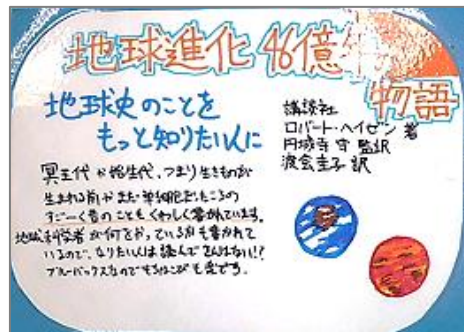 地球進化 46億年
物語
地球史のことを
もっと知りたい人に
講談社
ロバート・ヘイゼン 著
円城寺 守 監訳
渡会圭子 訳
冥王代や始生代、つまり生きものが
生まれる前やまだ単細胞だったころの
すごーく昔のことをくわしく書かれています。
地球科学者が何をやっているかも書かれて
いるので、なりたい人は読んで
ブルーバックスなのでもちはこびも楽です。